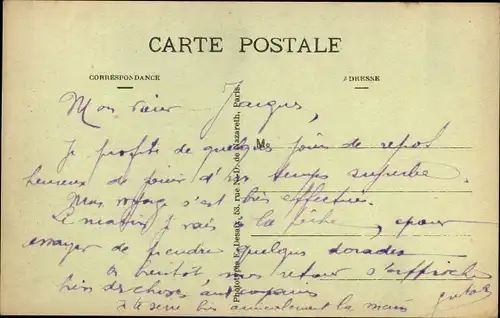 CARTE POSTALE
CORRESPONDANCE
ADRESSE
Mon vieux Jacques,
M
Je profite de quelques jours de repos
heureux de jouir d'un temps superbe.
Mon voyage s'est très bien effectué.
Le matin, je vais à la pêche, pour
essayer de prendre quelques dorades
à bientôt mon retour s'approche
bien des choses aux copains
Je te serre bien amicalement la main
Phototypie E. Desaix, 53, rue N.-D. de Nazareth, Paris.